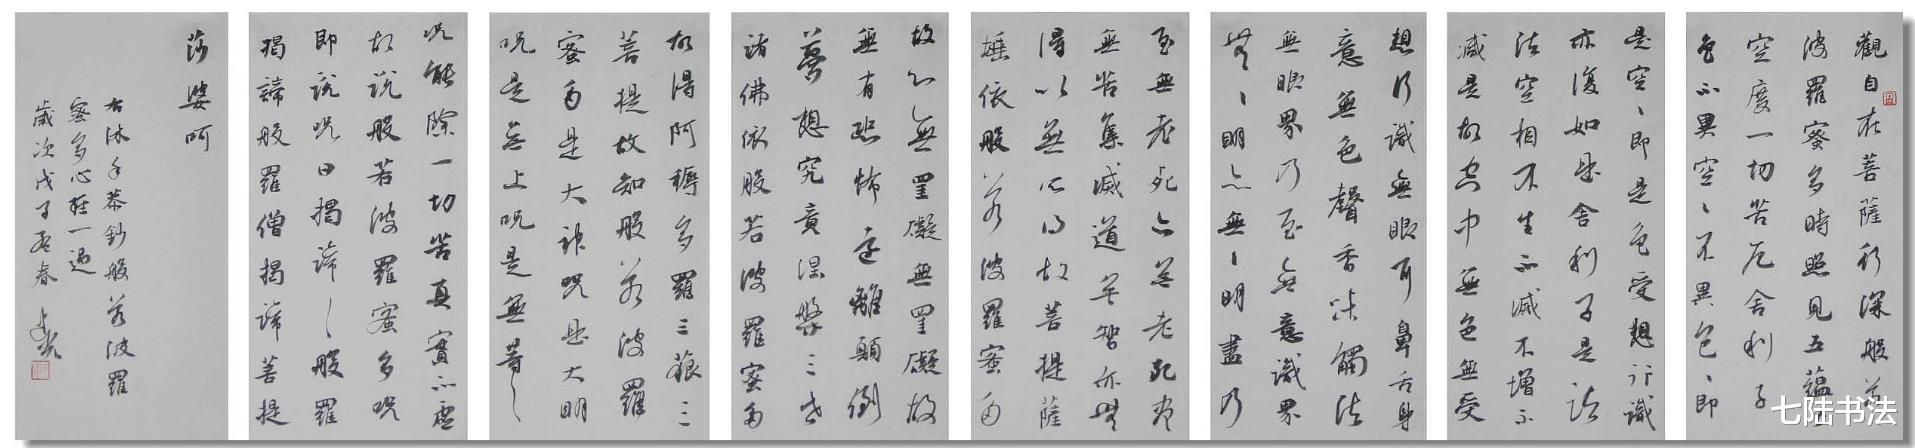 觀自在菩薩行深般若
波羅蜜多時照見五蘊皆
空度一切苦厄舍利子
色不異空、不異色、即
是空、即是色受想行識
亦復如是舍利子是諸
法空相不生不滅不增不
減是故空中無色無受
想行識無眼耳鼻舌身
意無色聲香味觸法
無眼界乃至無意識界
無、明亦無、明盡乃
至無老死亦無老死盡
無苦集滅道無智亦無
得以無所得故菩提薩
埵依般若波羅蜜多
故心無罣礙無罣礙故
無有恐怖遠離顛倒
夢想究竟涅槃三世
諸佛依般若波羅蜜多
故得阿耨多羅三藐三
菩提故知般若波羅
蜜多是大神咒是大明
咒是無上咒是無等、
咒能除一切苦真實不虛
故說般若波羅蜜多咒
即說咒曰揭諦、般羅
揭諦般羅僧揭諦菩提
莎婆呵
右沐手恭鈔般若波羅
蜜多心經一過
歲次戊子孟春
七陆书法